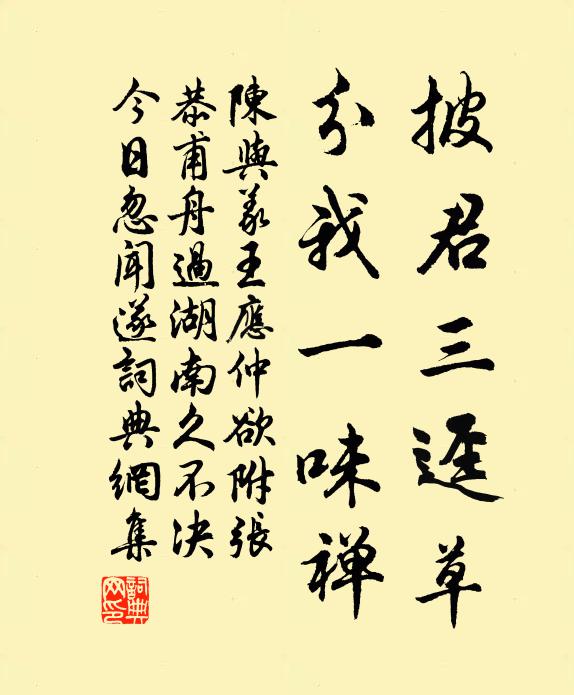 披君三逕草
分我一味禅
陳與義王應仲欲附張
恭甫舟過湖南久不决
今日忽聞遂詞典網集
詞典網印